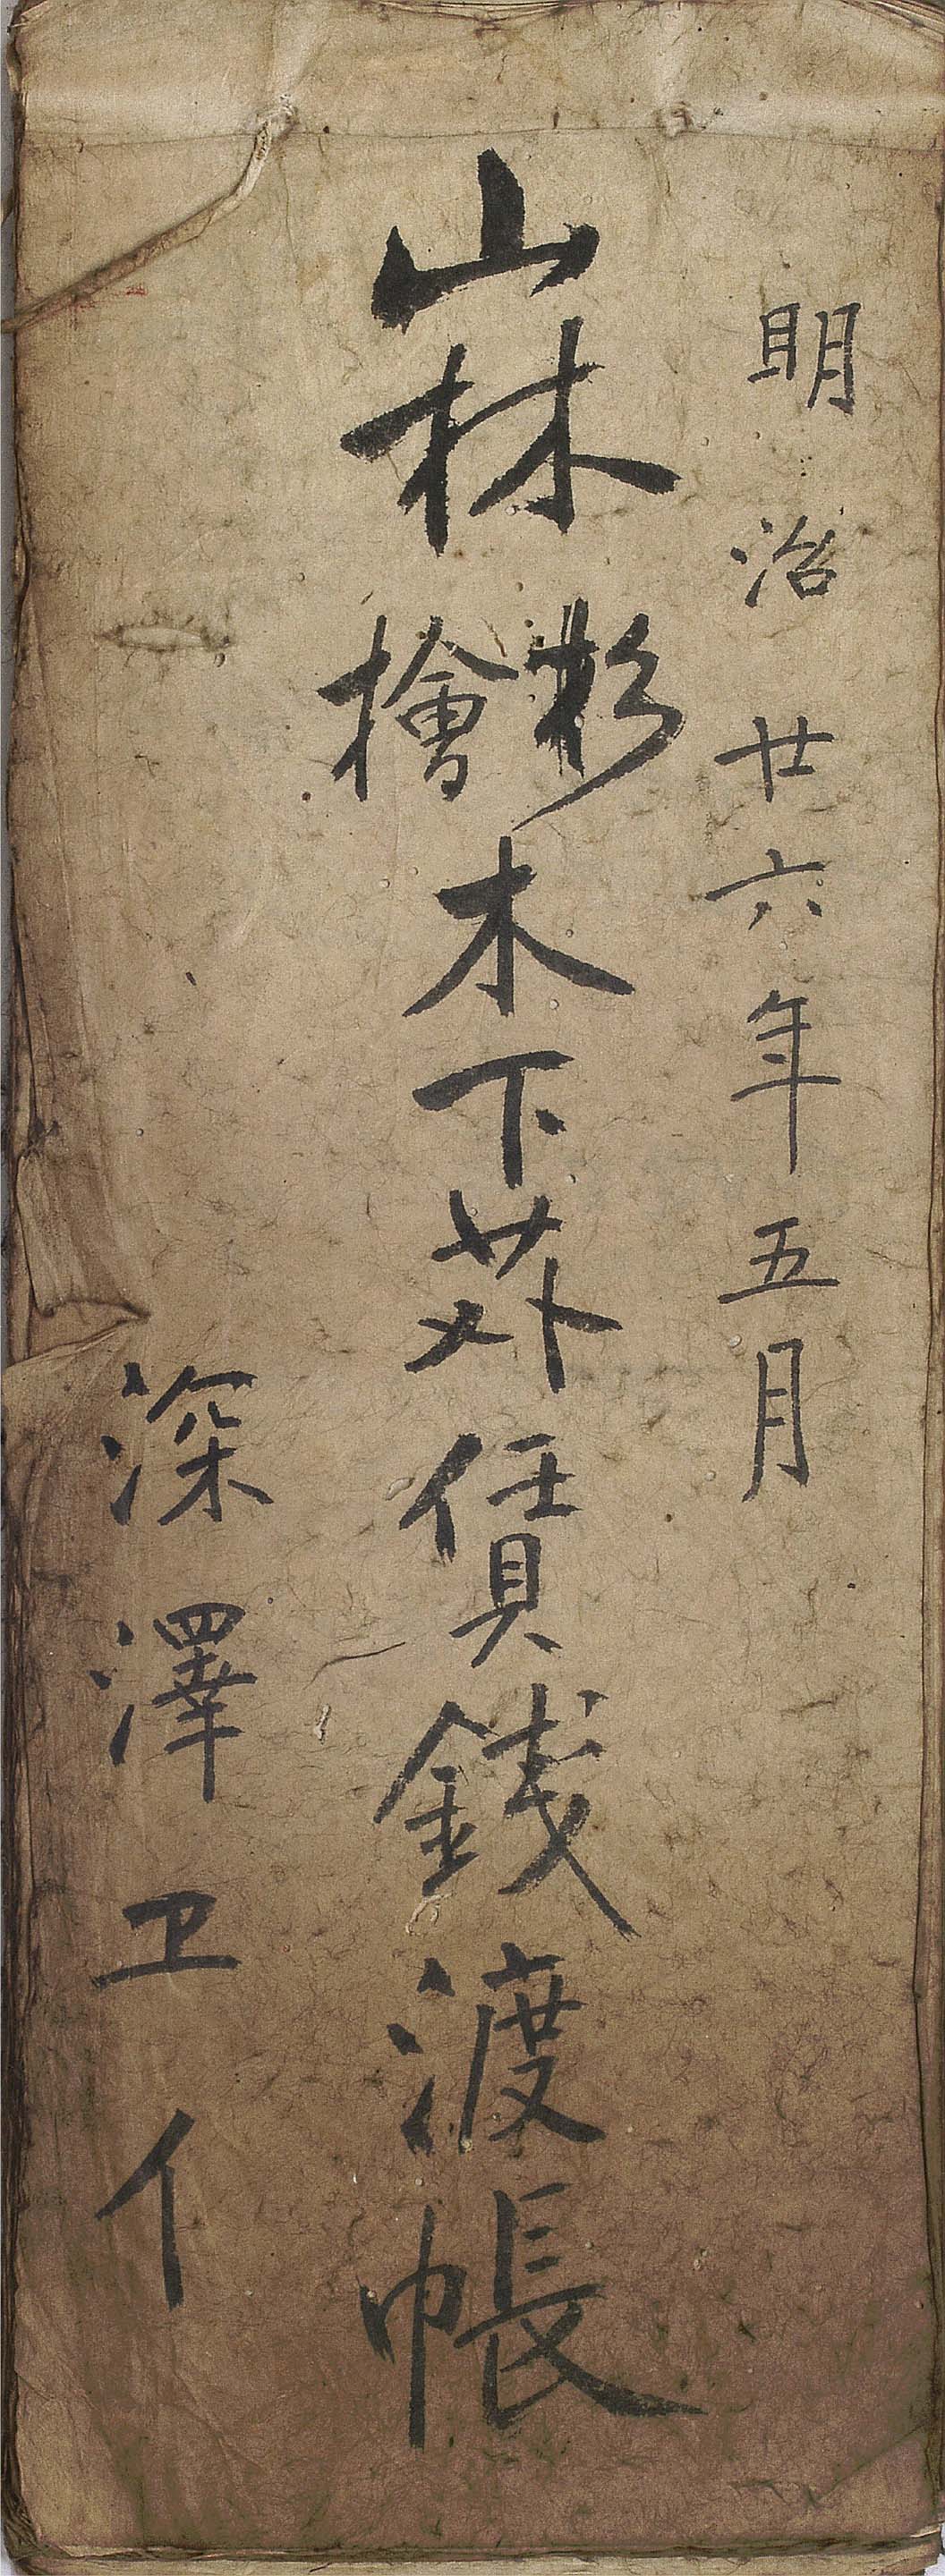 明治廿六年五月
山林杉檜木下苅賃銭渡帳
深澤ヱイ